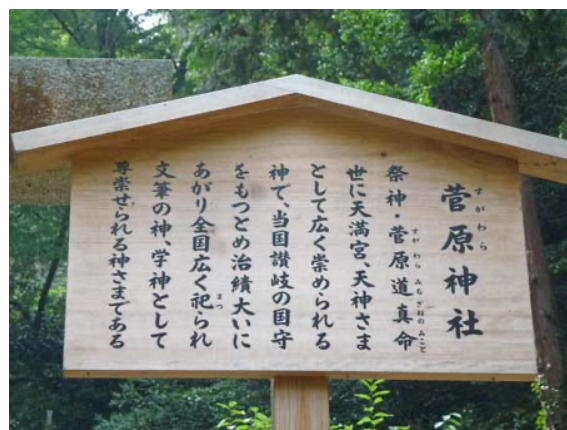 菅原神社
すがわら
祭神・菅原道真命
すがわらみちざねのみこと
世に天満宮、天神さま
として広く崇められる
神で、当国讃岐の国守
をもつとめ治績大いに
あがり全国広く祀られ
まつ
文筆の神、学神として
尊崇せられる神さまである